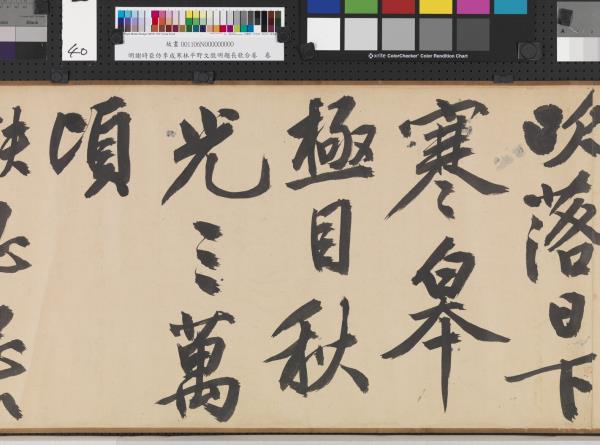 Black
40
故畫 001106N000000000
明謝時臣仿李成寒林平野文徵明題長歌合卷 卷
x-rite ColorChecker Color Rendition Chart
吹落日下
寒皋
極目秋
光三萬
頃